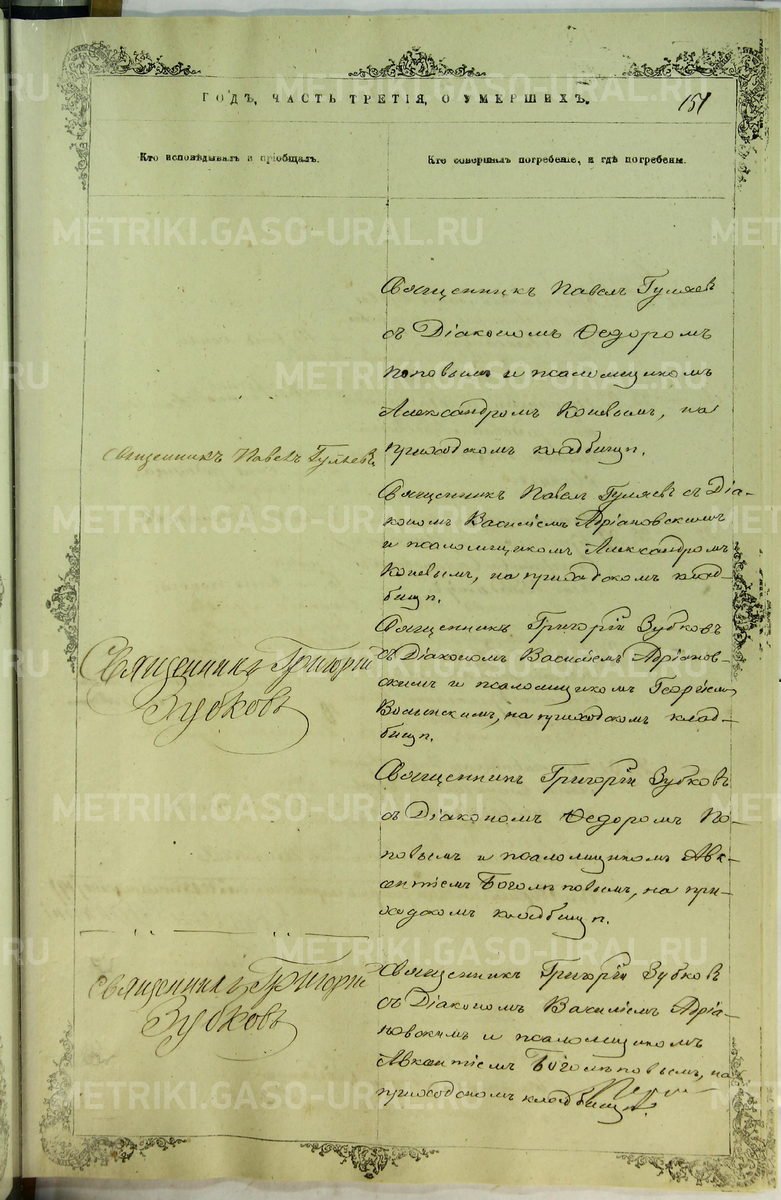 ГОДЪ, ЧАСТЬ ТРЕТІЯ, О УМЕРШИХЪ.
151
Кто исповѣдывалъ и пріобщалъ.
Кто совершалъ погребеніе, и гдѣ погребены.
METRIKI.GASO-URAL.RU
Священникъ Павелъ Гуляевъ
съ Діакономъ Ѳедоромъ
Поповымъ и псаломщикомъ
Александромъ Коневымъ, на
приходскомъ кладбищѣ.
Священникъ Павелъ Гуляевъ
Священникъ Павелъ Гуляевъ съ Діа-
кономъ Василіемъ Адріановскимъ
и псаломщикомъ Александромъ
Коневымъ, на приходскомъ клад-
бищѣ.
Священникъ Григорій Зубковъ
съ Діакономъ Василіемъ Адріанов-
скимъ и псаломщикомъ Георгіемъ
на приходскомъ клад-
бищѣ.
Священникъ Григорій
Зубковъ
Священникъ Григорій Зубковъ
съ Діакономъ Ѳедоромъ По-
повымъ и псаломщикомъ Авк-
сентіемъ Боголѣповымъ, на при-
ходскомъ кладбищѣ.
Священникъ Григорій
Зубковъ
Священникъ Григорій Зубковъ
съ Діакономъ Василіемъ Адріа-
новскимъ и псаломщикомъ
Авксентіемъ Боголѣповымъ, на
приходскомъ кладбищѣ.